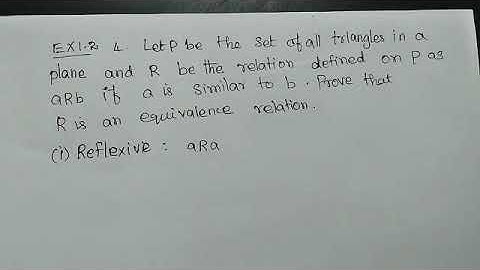 EX1.2 4. Let P be the set of all triangles in a
plane and R be the relation defined on P as
aRb if a is similar to b. Prove that
R is an equivalence relation.
(i) Reflexive : aRa